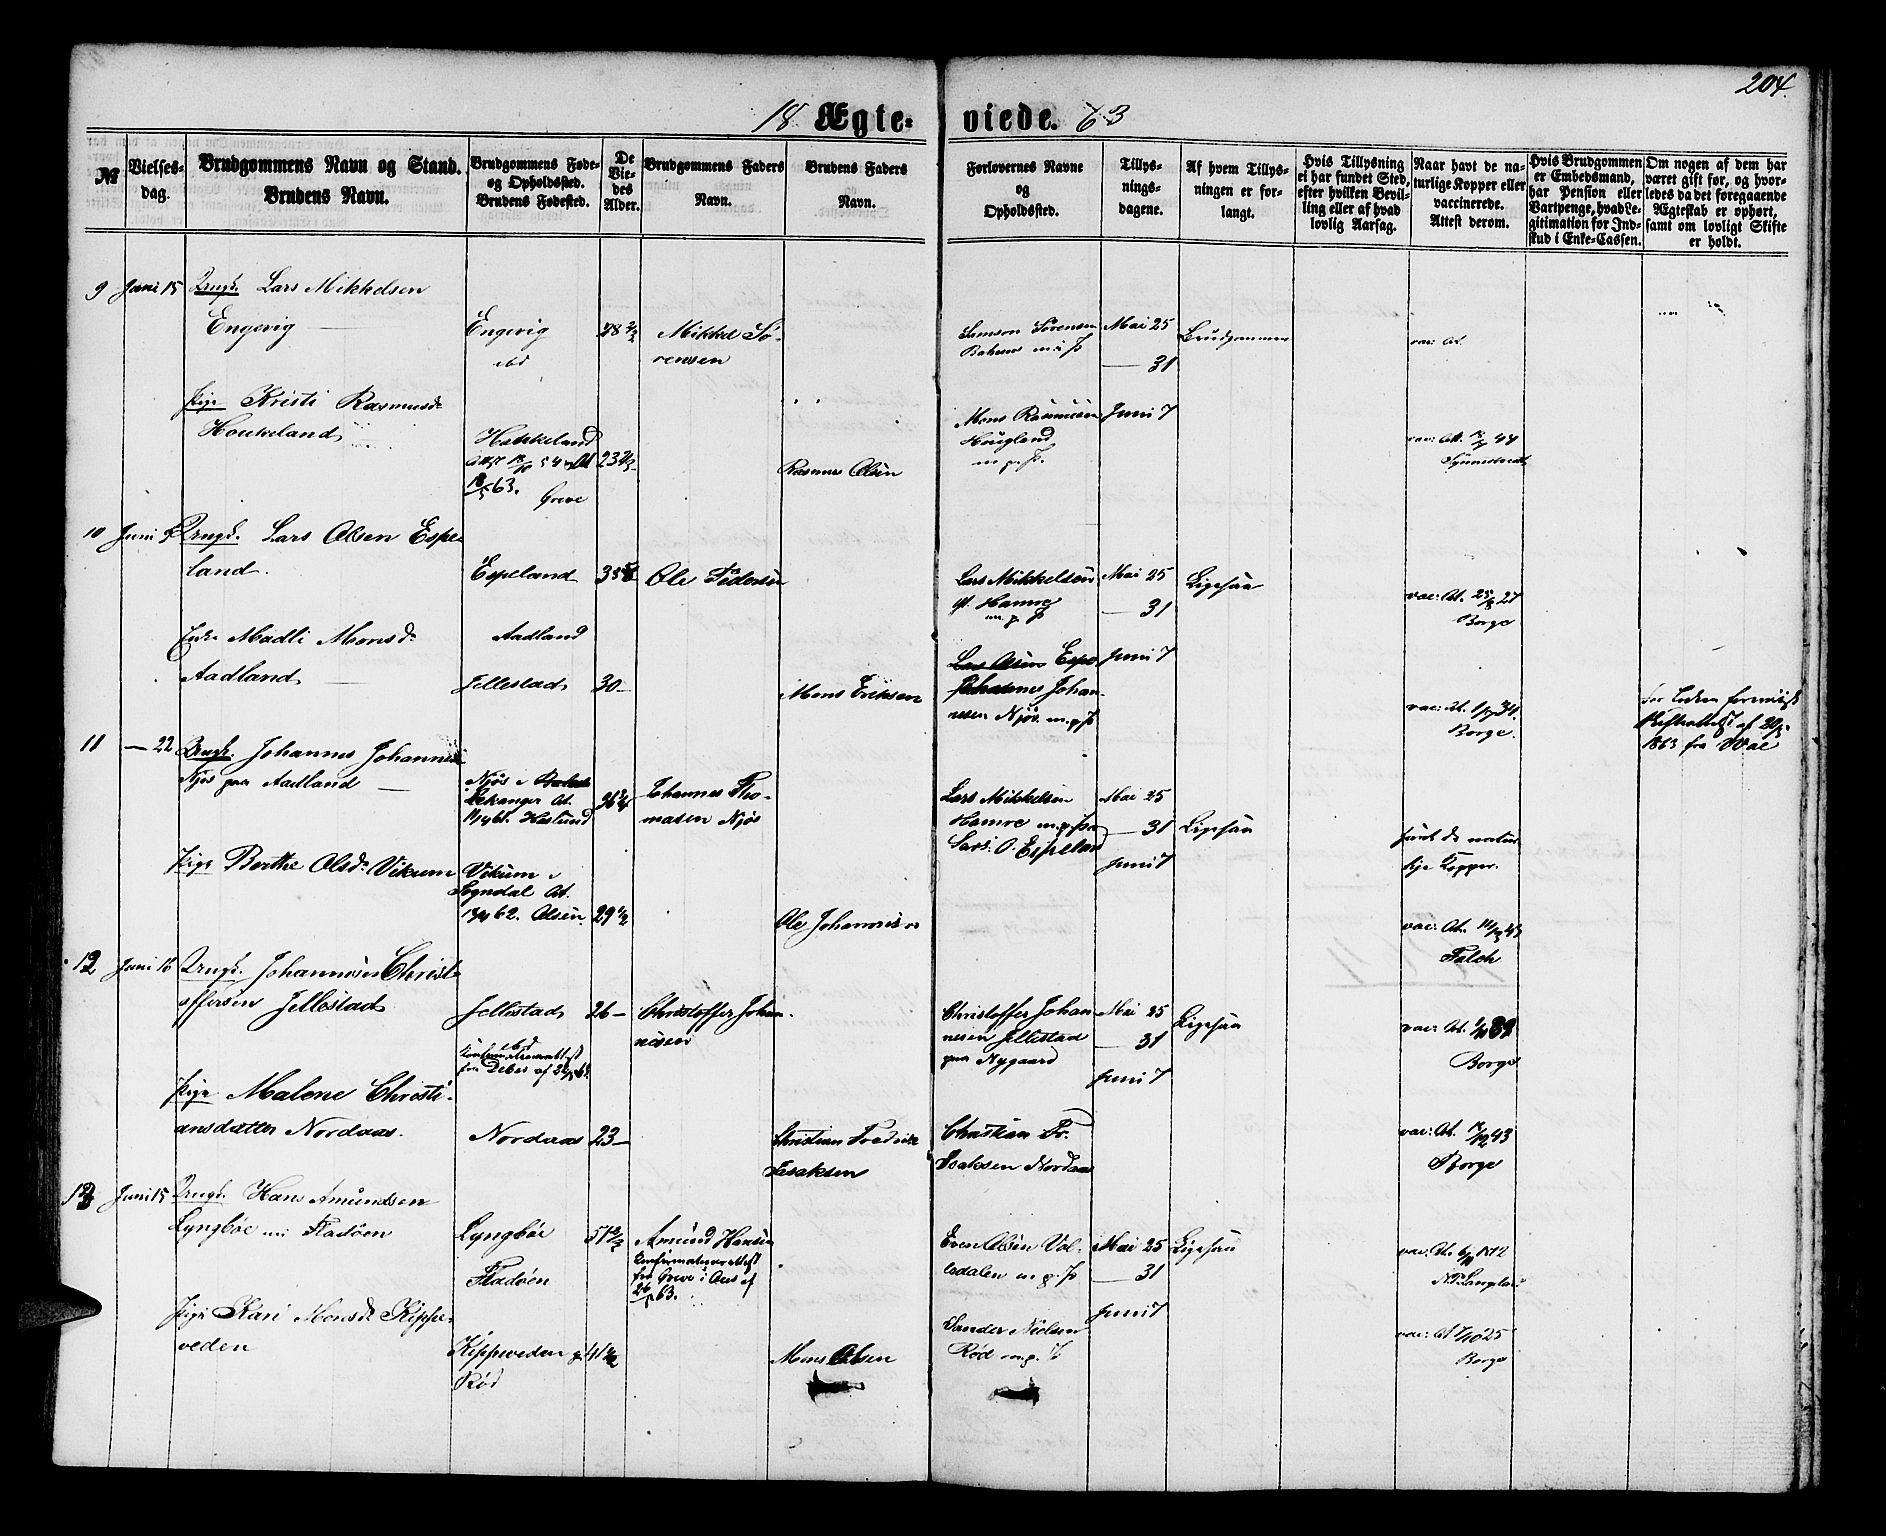 204.
18 Ægte-viede. 63
№
Vielses-
dag.
Brudgommens Navn og Stand.
Brudens Navn.
Brudgommens Føde-
og Opholdssted.
Brudens Fødested.
De
Vie-
des
Alder.
Brudgommens Faders
Navn.
Brudens Faders
Navn.
Forlovernes Navne
og
Opholdssted.
Tillys-
nings-
dagene.
Af hvem Tillys-
ningen er for-
langt.
Hvis Tillysning
ei har fundet Sted,
efter hvilken Bevil-
ling eller af hvad
lovlig Aarsag.
Naar havt de na-
turlige Kopper eller
vaccinerede.
Attest derom.
Hvis Brudgommen
er Embedsmand,
har Pension eller
Vartpenge, hvad Le-
gitimation for Ind-
skud i Enke-Cassen.
Om nogen af dem har
været gift før, og hvor-
ledes da det foregaaende
Ægteskab er ophørt,
samt om lovligt Skifte
er holdt.
9 Juni 15 Ungk. Lars Mikkelsen
Engevig
Engevig
ibd
48 1/2
Mikkel Sø-
rensen
Samson Sørensen
m. p.
Mai 25
— 31
Juni 7
Brudgommen
vac: At.
Pige Kristi Rasmusd.
Houkeland
Haukeland
18/5 63. Greve
23
Rasmus Olsen
Mons Rasmussen
Hougland
m. p.
vac: Att. 44
10 Juni Ungk. Lars Olsen Espe-
land.
Espeland
Ole Pedersen
Lars Mikkelsen
Hamre
m. p.
Mai 25
— 31
Juni 7
Ligesaa
vac: At. 27
Borge
Enke Madli Monsd.
Aadland
Aadland
Jellestad
30 —
Mons Eriksen
Lars Olsen Espe
Johannes Johan-
nesen Njøs m. p.
vac: At. 34.
Borge.
1863 fra
11 — 22 Ungk. Johannes Johannes
Njøs paa Aadland
Njøs i
Lekanger At.
Haslund
36
Johannes Tho-
masen Njøs
Lars Mikkelsen
Hamre m. p.
Lars O. Espeland
Mai 25
— 31
Juni 7
Ligesaa
havt de natur
lige Kopper.
Pige Berthe Olsd. Vikum
Vikum i
Sogndal At.
62. Olsen.
29 1/2
Ole Johannesen
vac: At. 43
Falch
12 Juni 16 Ungk. Johannes Christ-
offersen Jellestad
Jellestad
ibd
26 —
Christoffer Johan-
nesen
Christoffer Johan
nesen Jellestad
paa Nygaard
Mai 25
— 31
Juni 7
Ligesaa
vac: At.
Borge
Pige Malene Christi-
ansdatter Nordaas.
Nordaas
23 —
Christian Fredrik
Isaksen
Christian Fr.
Isaksen Nordaas
vac: At. 43
Borge
13 Juni 15 Ungk. Hans Amundsen
Lyngbøe Fladøen
Lyngbøe
Fladøen
51
Amund Hansen
Konfirmationsattest
fra Greve i Aus af
26/5 63.
Even Olsen Vol-
ledalen m. p.
Mai 25
— 31
Juni 7
Ligesaa
vac: At. 1812
Pige Kari Monsd. Kippe-
veden
Kippeveden p.
Rød
41 1/2
Mons Olsen
Sander Nielsen
Rød m. p.
vac: At 25
Borge